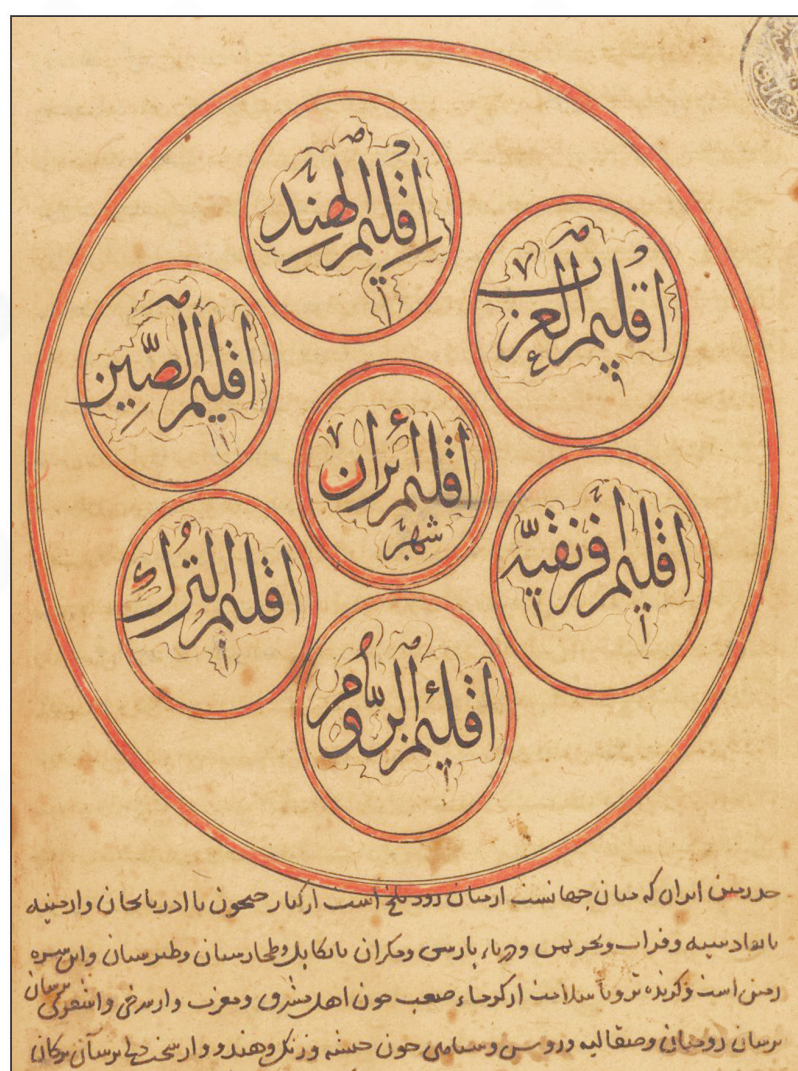 اقلیم الهند
اقلیم العرب
اقلیم الصین
اقلیم ایران
شهر
اقلیم افریقیه
اقلیم الترك
اقلیم الروم
حد زمین ایران که میان جهانست از میان رود بلخ است از کنار جیحون تا اذربایجان و ارمنیه
تا بقادسیه و فرات و بحر یمن و دریاء پارس و مکران تا بکابل و طخارستان و طبرستان و این سره
زمین است و گزیده تر و با سلامت از گرماء صعب چون اهل مشرق و مغرب و از سرخی و اشقری برسان
برسان رومیان و صقالبه و روس و سیاهی چون حبشه و زنگ و هندو و از سخت دلی برسان ترکان